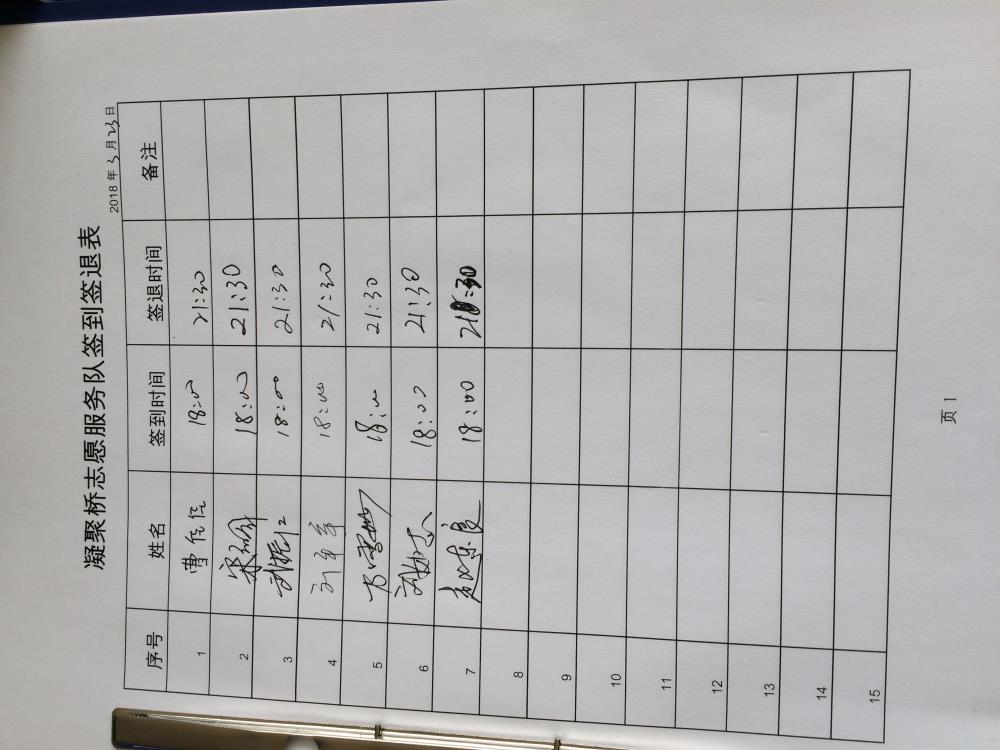 凝聚桥志愿服务队签到签退表
2018 年 3 月 23 日
序号 姓名 签到时间 签退时间 备注
1 曹伍伍 18:00 21:30
2 18:00 21:30
3 18:00 21:30
4 18:00 21:30
5 18:00 21:30
6 18:00 21:30
7 18:00 21:30
8
9
10
11
12
13
14
15
页 1